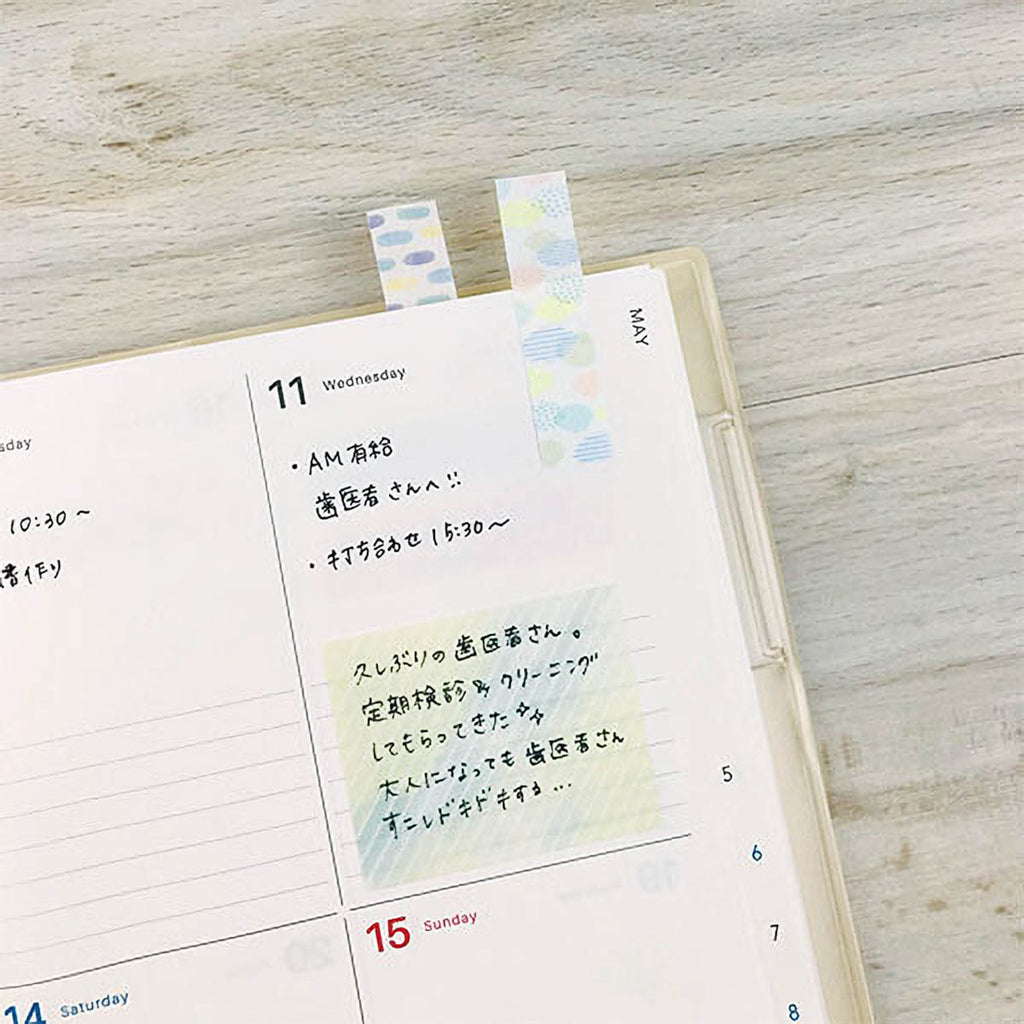 MAY
sday
10:30〜
作り
11 Wednesday
・AM有給
歯医者さんへ!!
・打ち合わせ 15:30〜
久しぶりの歯医者さん。
定期検診&クリーニング
してもらってきた✨
大人になっても歯医者さん
すこしドキドキする…
5
6
7
8
14 Saturday
15 Sunday